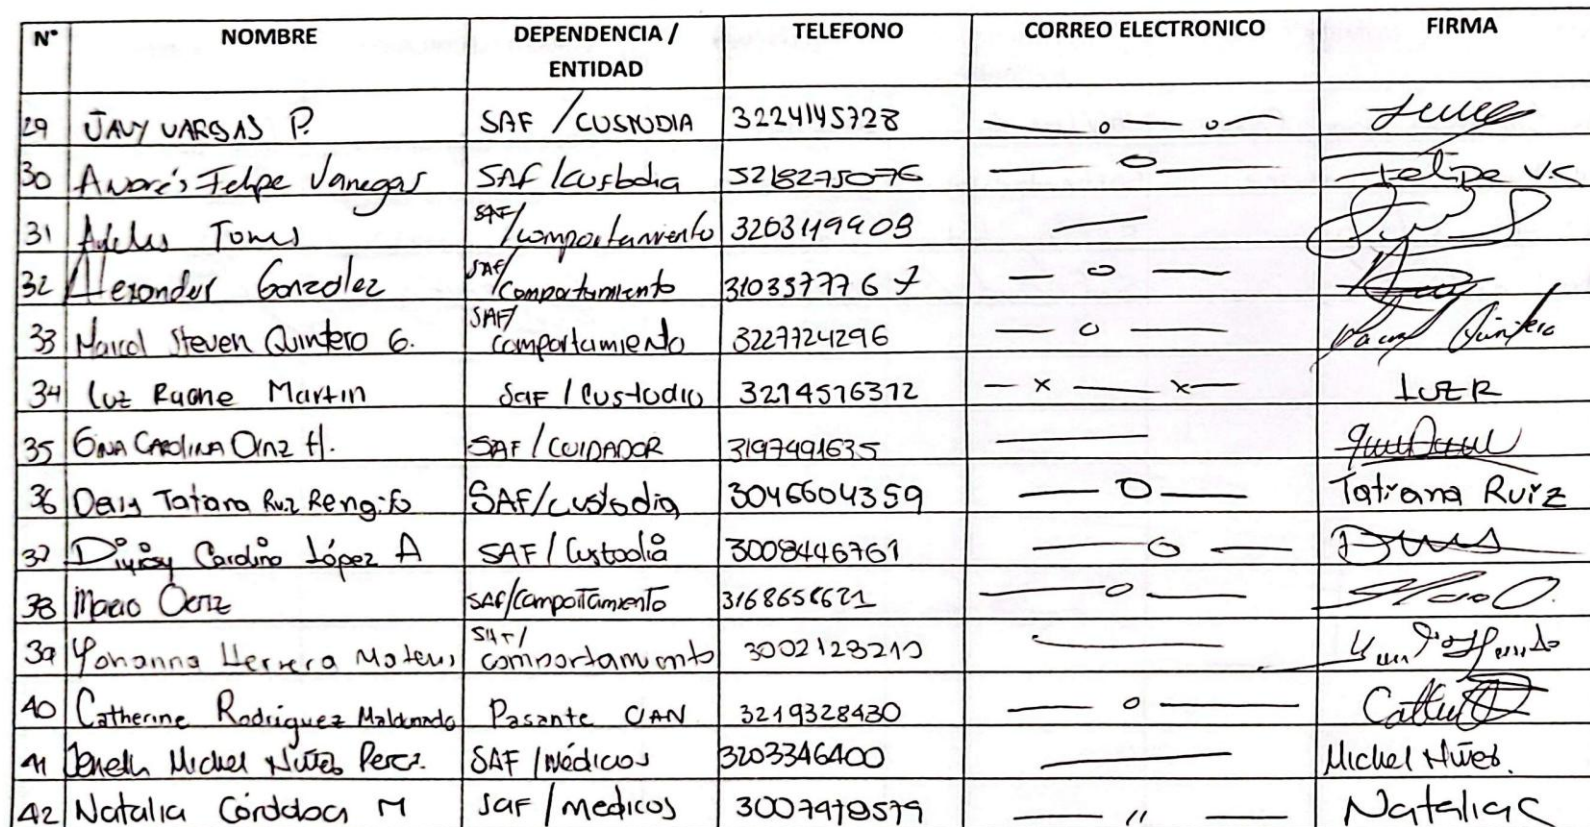 N° NOMBRE DEPENDENCIA / ENTIDAD TELEFONO CORREO ELECTRONICO FIRMA
29 JAVY VARGAS P. SAF / CUSTODIA 3224145728
30 Andrés Felipe Vanegas SAF / Custodia 3218275076 Felipe V.S
31 Torres SAF/ comportamiento 3203119909
32 Alexander González SAF/ Comportamiento 3103577767
33 Marcol Steven Quintero G. SAF/ comportamiento 3227724296 Quintero
34 Luz Martin SAF / Custodia 3214576312 LUZ R
35 GINA CAROLINA H. SAF / CUIDADOR 3197491635
36 Deisy Tatiana Ruiz Rengifo SAF/Custodia 3046604359 Tatiana Ruiz
37 Carolina López A SAF / Custodia 3008446761
38 Mario Ortiz SAF/Comportamiento
39 Yohanna Herrera Mateus SAF/ comportamiento 3002123210
40 Catherine Rodríguez Maldonado Pasante UAN 3219328430
41 Michel Núñez Perez. SAF / Médicos 3203346400 Michel Núñez.
42 Natalia Córdoba M SAF / medicos 3007979579 " Natalia C